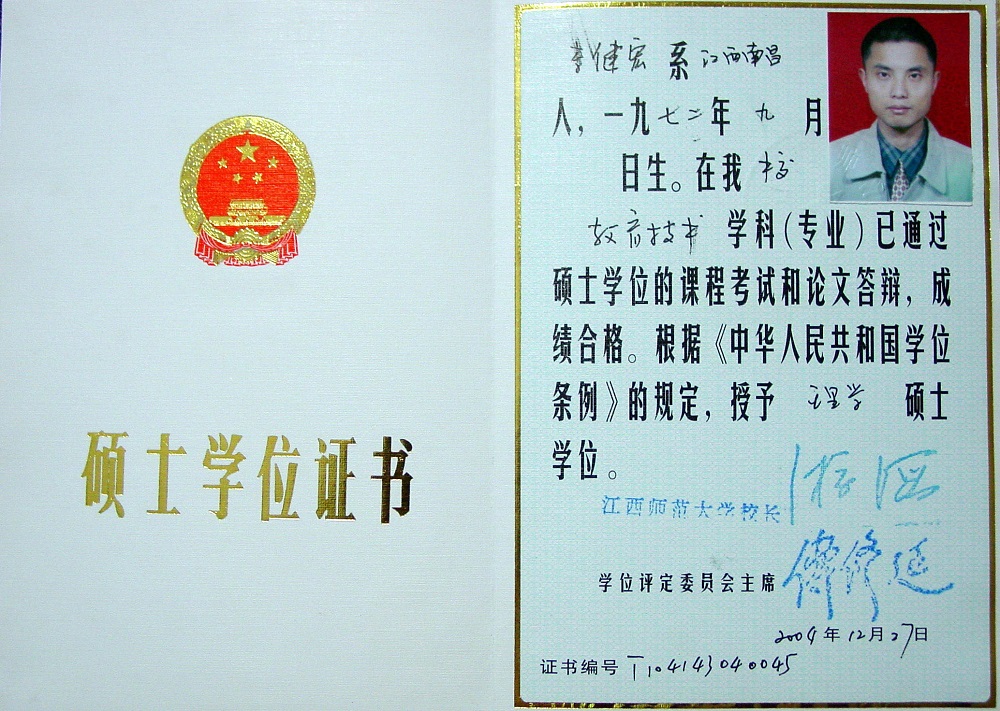 硕士学位证书
李健宏 系 江西南昌
人，一九七二年 九 月
日生。在我 校
教育技术 学科（专业）已通过
硕士学位的课程考试和论文答辩，成
绩合格。根据《中华人民共和国学位
条例》的规定，授予 理学 硕士
学位。
江西师范大学校长
学位评定委员会主席
2004年12月27日
证书编号 T104143040045